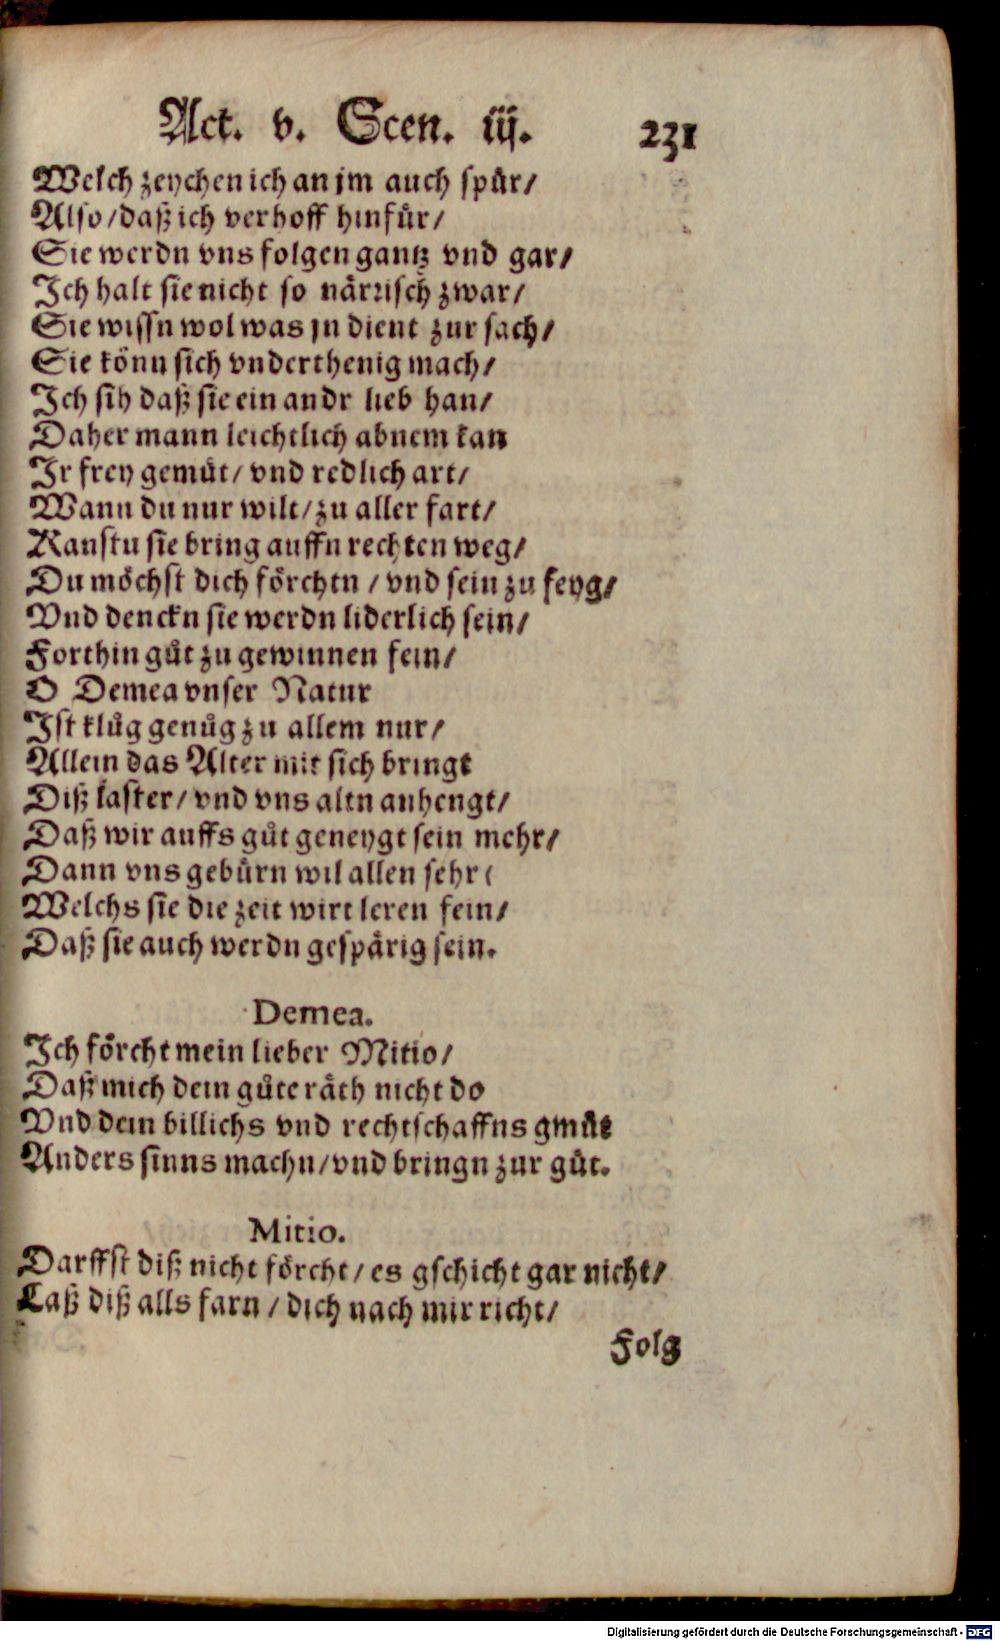 Act. v. Scen. iij. 231
Welch zeychen ich an jm auch spůr/
Also/daß ich verhoff hinfůr/
Sie werdn vns folgen gantz vnd gar/
Ich halt sie nicht so nårrisch zwar/
Sie wissn wol was jn dient zur sach/
Sie kőnn sich vnderthenig mach/
Ich sih daß sie ein andr lieb han/
Daher mann leichtlich abnem kan
Ir frey gemůt/ vnd redlich art/
Wann du nur wilt/zu aller fart/
Kanstu sie bring auffn rechten weg/
Du möchst dich förchtn / vnd sein zu feyg/
Vnd denckn sie werdn liderlich sein/
Forthin gůt zu gewinnen fein/
O Demea vnser Natur
Ist klůg genůg zu allem nur/
Allein das Alter mit sich bringt
Diß laster/ vnd vns altn anhengt/
Daß wir auffs gůt geneygt sein mehr/
Dann vns gebůrn wil allen sehr(
Welchs sie die zeit wirt leren fein/
Daß sie auch werdn gespårig sein.
Demea.
Ich förcht mein lieber Mitio/
Daß mich dein gůte råth nicht do
Vnd dein billichs vnd rechtschaffns gmůt
Anders sinns machn/vnd bringn zur gůt.
Mitio.
Darffst diß nicht förcht/es gschicht gar nicht/
Laß diß alls farn / dich nach mir richt/
Folg
Digitalisierung gefördert durch die Deutsche Forschungsgemeinschaft - DFG